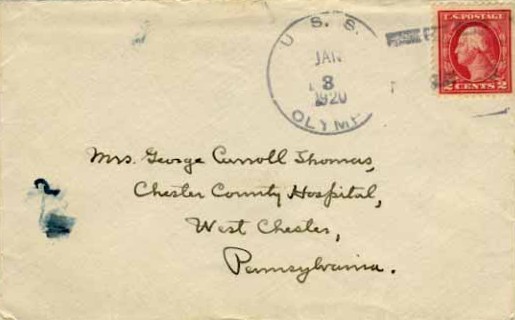 U. S. S.
JAN
3
1920
OLYMP
U.S. POSTAGE
2 CENTS 2
Mrs. George Carroll Thomas,
Chester County Hospital,
West Chester,
Pennsylvania.